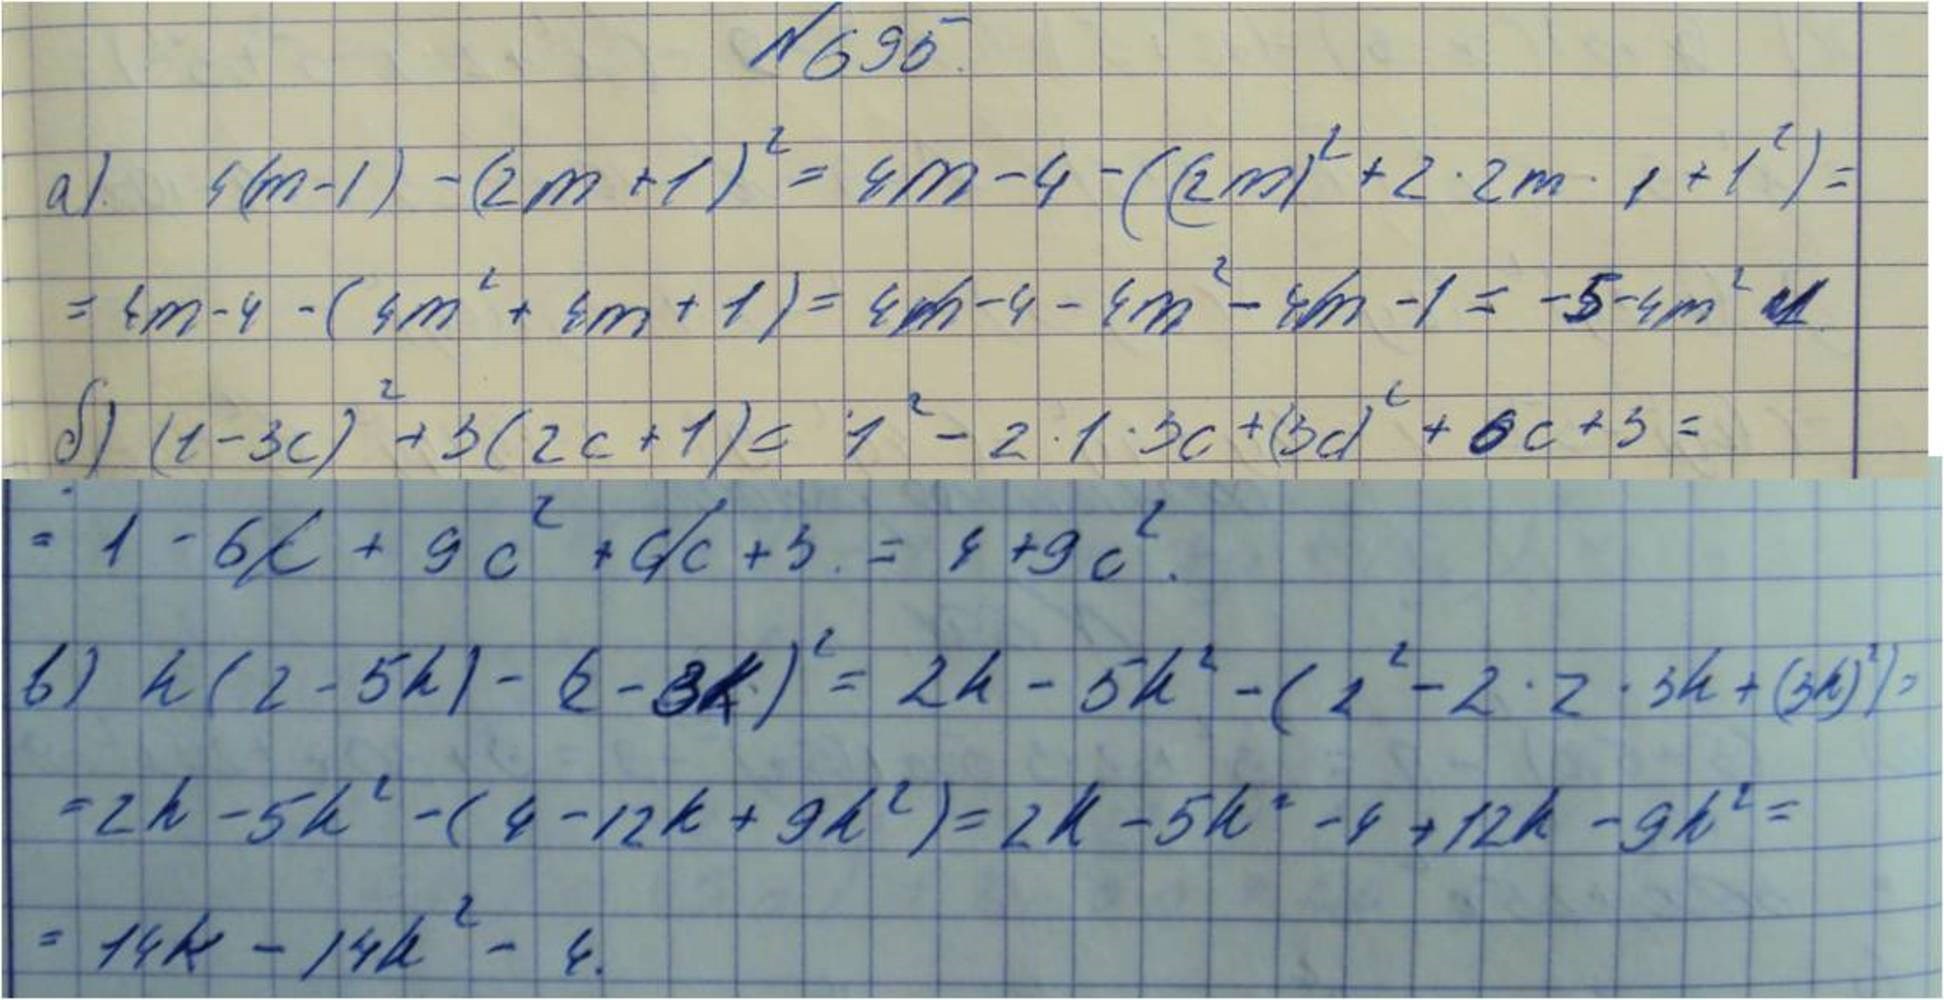 №695.
а). 4(m-1) - (2m+1)² = 4m-4-((2m)²+2·2m·1+1²)=
= 4m-4-(4m²+4m+1)= 4m-4-4m²-4m-1 = -5-4m²
б) (1-3c)²+3(2c+1)= 1²-2·1·3c+(3c)²+6c+3=
= 1-6c+9c²+6c+3.= 4+9c².
в) k(2-5k)-(2-3k)²= 2k-5k²-(2²-2·2·3k+(3k)²)=
=2k-5k²-(4-12k+9k²)=2k-5k²-4+12k-9k²=
= 14k-14k²-4.